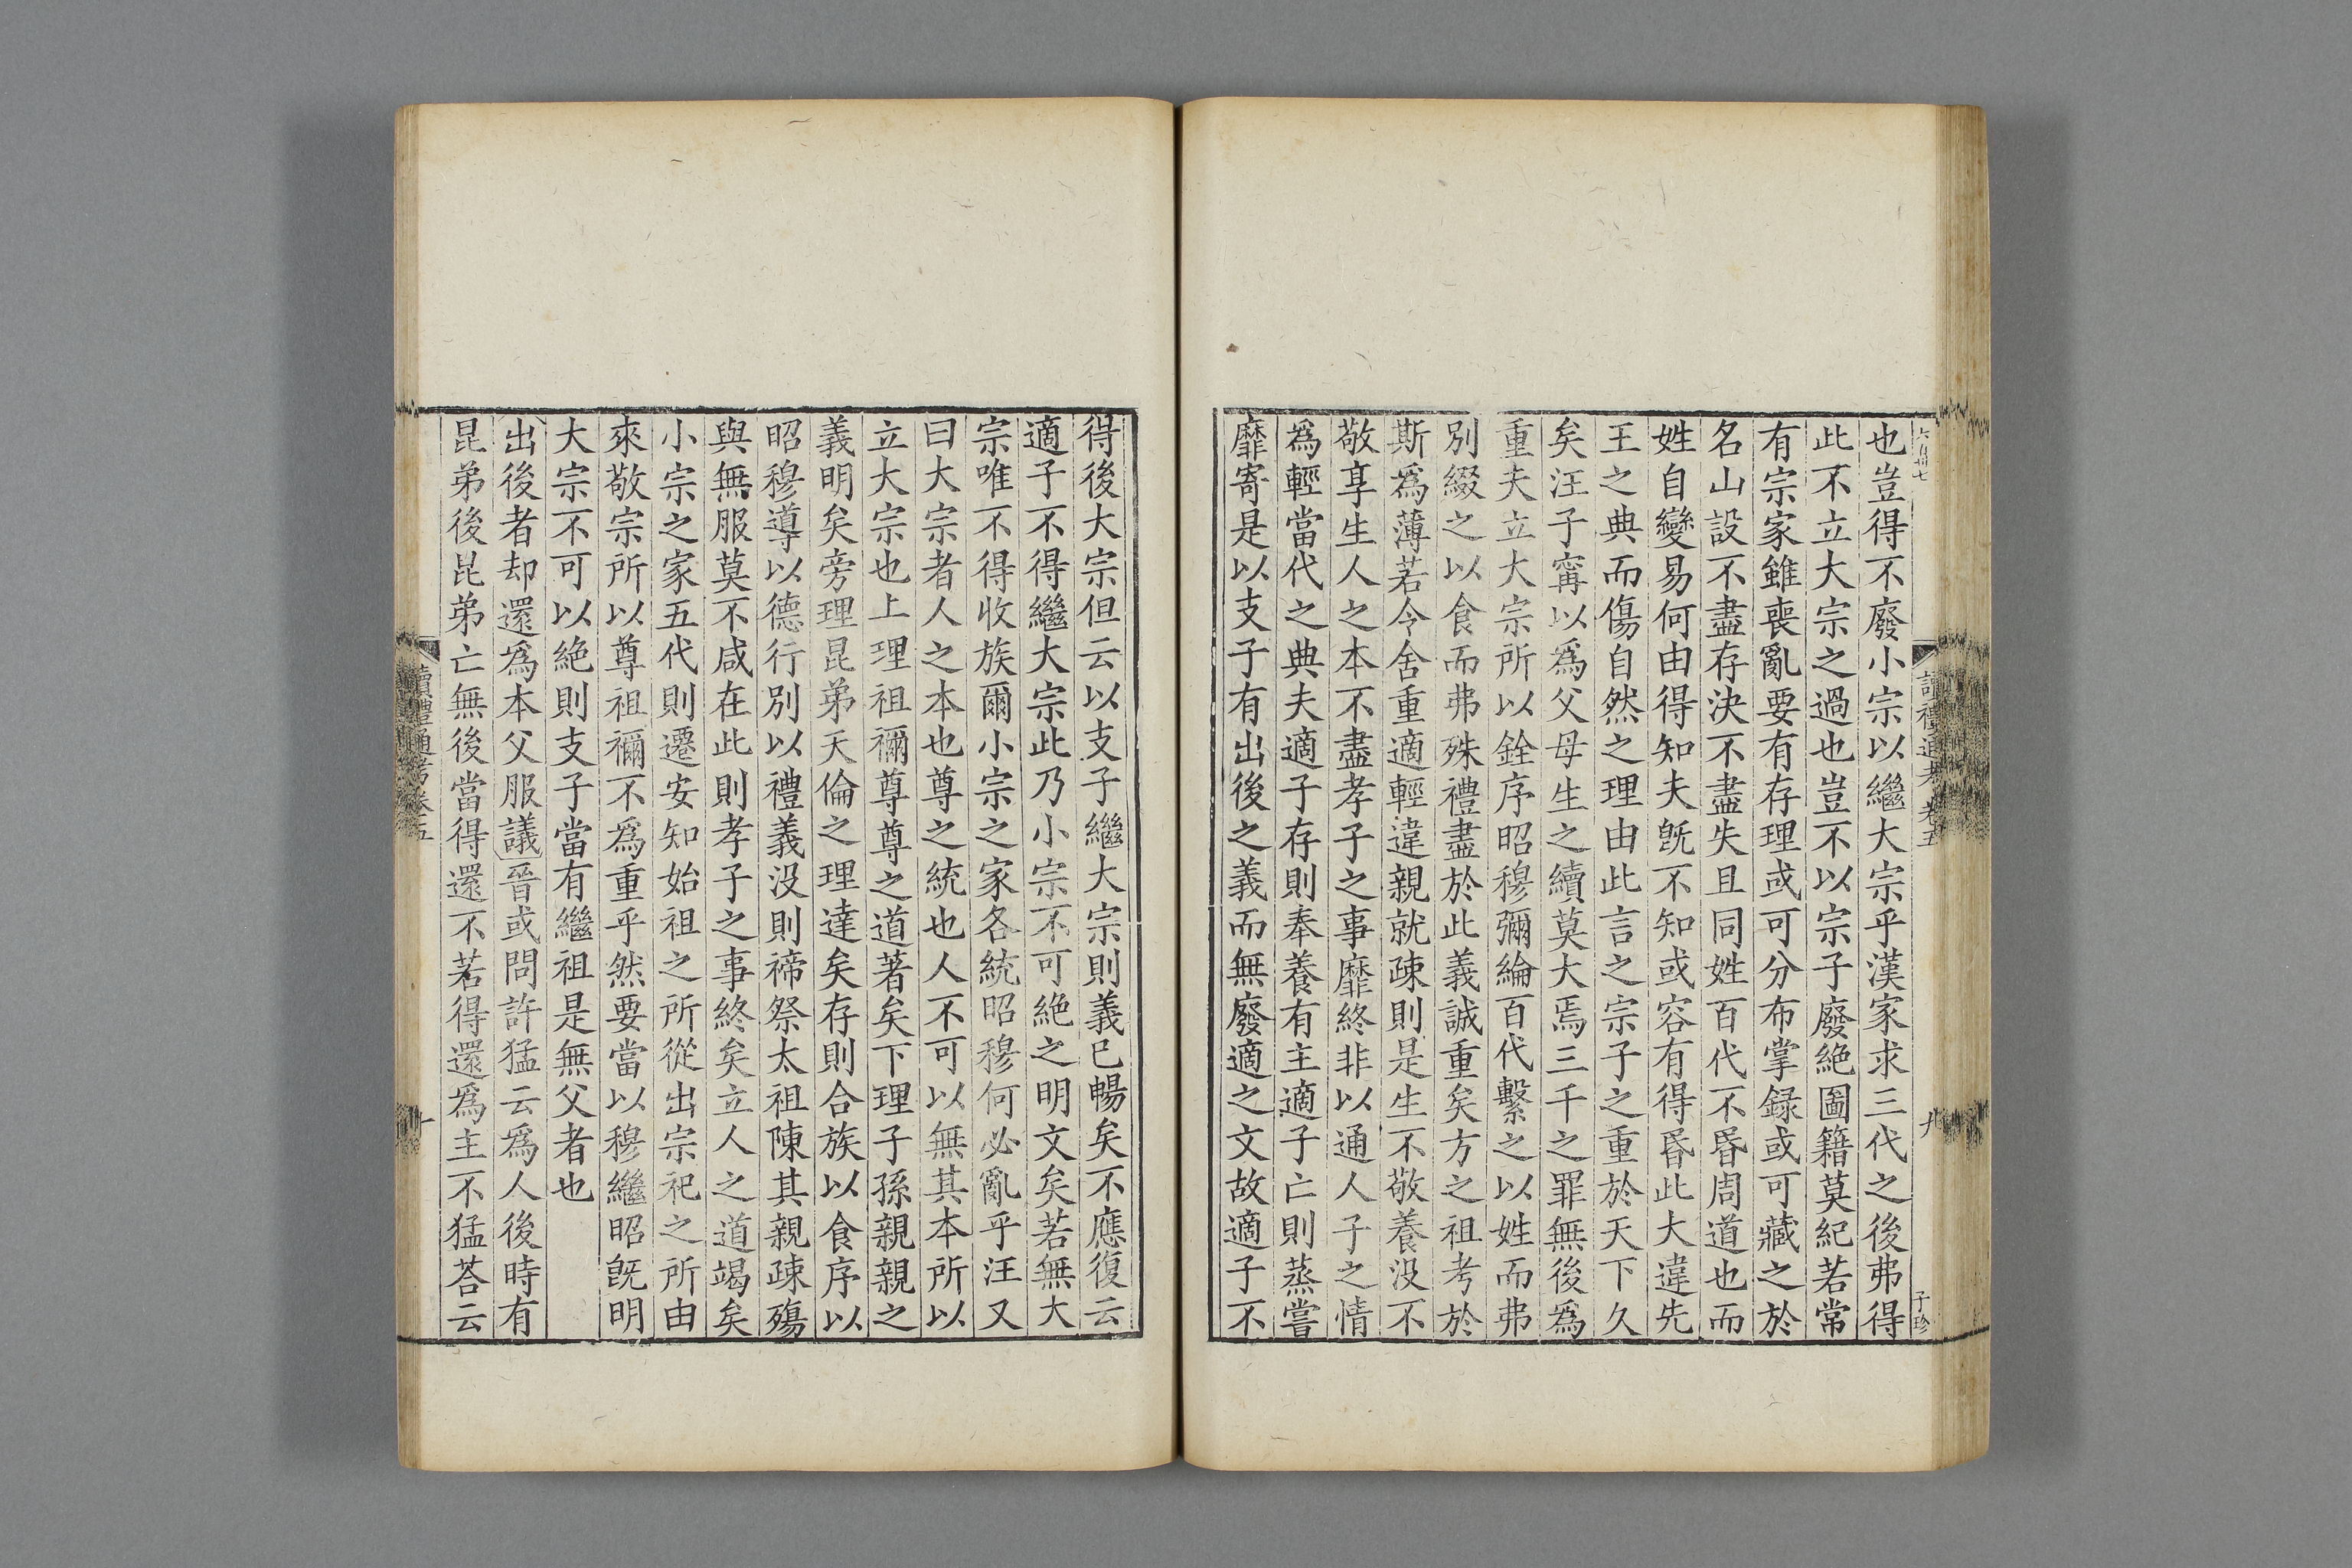 也豈得不廢小宗以繼大宗乎漢家求三代之後弗得
此不立大宗之過也豈不以宗子廢絶圖籍莫紀若常
有宗家雖喪亂要有存理或可分布掌録或可藏之於
名山設不盡存決不盡失且同姓百代不昬周道也而
姓自變易何由得知夫旣不知或容有得昬此大違先
王之典而傷自然之理由此言之宗子之重於天下久
矣汪子寗以爲父母生之續莫大焉三千之罪無後爲
重夫立大宗所以銓序昭穆彌綸百代繫之以姓而弗
別綴之以食而弗殊禮盡於此義誠重矣方之祖考於
斯爲薄若令舍重適輕違親就疎則是生不敬養没不
敬享生人之本不盡孝子之事靡終非以通人子之情
爲輕當代之典夫適子存則奉養有主適子亡則蒸嘗
靡寄是以支子有出後之義而無廢適之文故適子不
讀禮通考 卷五
九
子珍
得後大宗但云以支子繼大宗則義已暢矣不應復云
適子不得繼大宗此乃小宗不可絶之明文矣若無大
宗唯不得收族爾小宗之家各統昭穆何必亂乎汪又
曰大宗者人之本也尊之統也人不可以無其本所以
立大宗也上理祖禰尊尊之道著矣下理子孫親親之
義明矣旁理昆弟天倫之理達矣存則合族以食序以
昭穆導以德行別以禮義没則禘祭太祖陳其親疎殤
與無服莫不咸在此則孝子之事終矣立人之道竭矣
小宗之家五代則遷安知始祖之所從出宗祀之所由
來敬宗所以尊祖禰不爲重乎然要當以穆繼昭旣明
大宗不可以絶則支子當有繼祖是無父者也
出後者却還爲本父服議晉或問許猛云爲人後時有
昆弟後昆弟亡無後當得還不若得還爲主不猛荅云
讀禮通考卷五
十